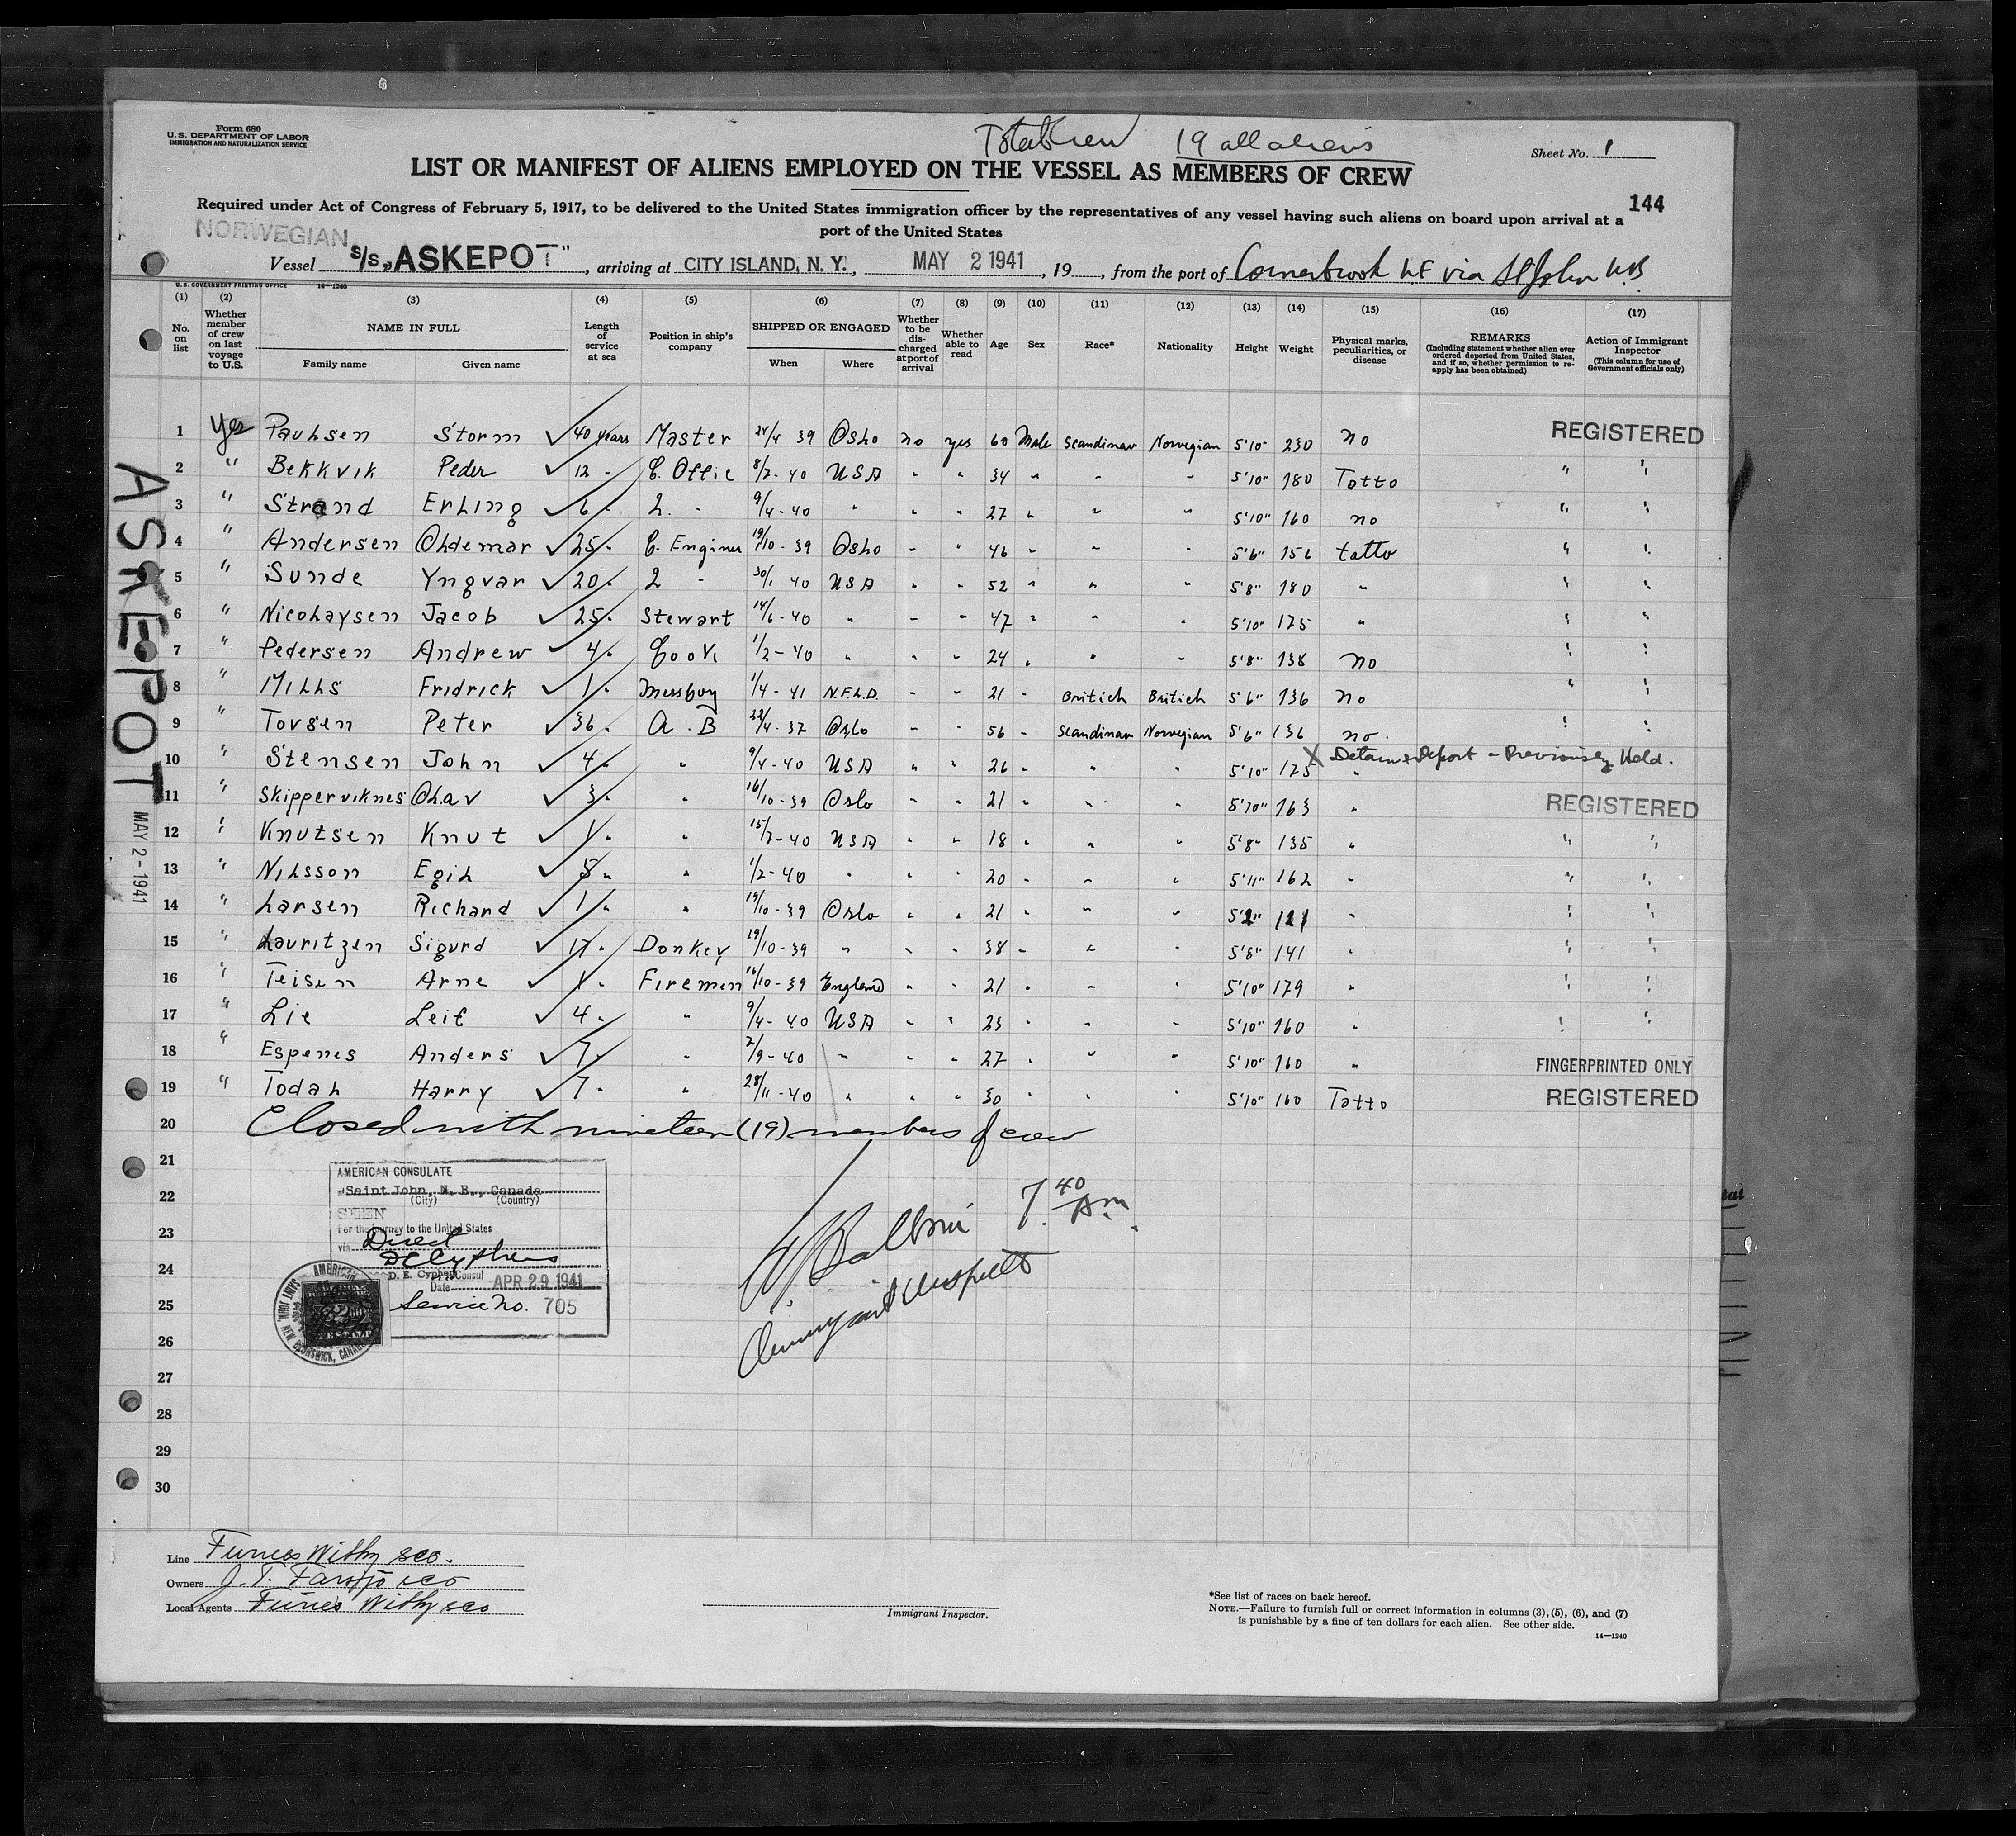 Form 680
U.S. DEPARTMENT OF LABOR
IMMIGRATION AND NATURALIZATION SERVICE
Total Crew 19 all aliens
Sheet No. 1
LIST OR MANIFEST OF ALIENS EMPLOYED ON THE VESSEL AS MEMBERS OF CREW
144
Required under Act of Congress of February 5, 1917, to be delivered to the United States immigration officer by the representatives of any vessel having such aliens on board upon arrival at a
port of the United States
NORWEGIAN
Vessel S/S „ASKEPOT", arriving at CITY ISLAND, N. Y., MAY 2 1941, 19, from the port of Cornerbrook N.F via St John N.B.
U.S. GOVERNMENT PRINTING OFFICE 14-1240
(1) (2) (3) (4) (5) (6) (7) (8) (9) (10) (11) (12) (13) (14) (15) (16) (17)
No. on list
Whether member of crew on last voyage to U.S.
NAME IN FULL
Family name Given name
Length of service at sea
Position in ship's company
SHIPPED OR ENGAGED
When Where
Whether to be discharged at port of arrival
Whether able to read
Age
Sex
Race*
Nationality
Height
Weight
Physical marks, peculiarities, or disease
REMARKS
(Including statement whether alien ever ordered deported from United States, and if so, whether permission to re-apply has been obtained)
Action of Immigrant Inspector
(This column for use of Government officials only)
1 Yes Paulsen Storm ✓ 40 years Master 24/4 39 Oslo no yes 60 Male Scandinav Norwegian 5'10" 230 no REGISTERED
2 " Bekkvik Peder ✓ 12 " C. Offic 8/7-40 USA " " 34 " " " 5'10" 180 Totto " "
3 " Strand Erling ✓ 6 " 2. " 9/4-40 " " " 27 " " " 5'10" 160 no " "
4 " Andersen Oldemar ✓ 25 " C. Enginer 19/10-39 Oslo " " 46 " " " 5'6" 156 tatto " "
5 " Sunde Yngvar ✓ 20 " 2 " 30/1 40 USA " " 52 " " " 5'8" 180 " " "
6 " Nicolaysen Jacob ✓ 25 " Stewart 14/6-40 " " " 47 " " " 5'10" 175 " " "
7 " Pedersen Andrew ✓ 4 " Cook 1/2-40 " " " 24 " " " 5'8" 138 no " "
8 " Mills Fridrick ✓ 1 " Messboy 1/4-41 N.F.L.D. " " 21 " Britich Britich 5'6" 136 no " "
9 " Torsen Peter ✓ 36 " A.B 22/4-37 Oslo " " 56 " Scandinav Norwegian 5'6" 136 no. " "
10 " Stensen John ✓ 4 " " 9/4-40 USA " " 26 " " " 5'10" 175 " X Detain & Deport - Previously Held.
11 " Skipperviknes Olav ✓ 3 " " 16/10-39 Oslo " " 21 " " " 5'10" 163 " REGISTERED
12 " Knutsen Knut ✓ 1 " " 15/7-40 USA " " 18 " " " 5'8" 135 " " "
13 " Nilsson Egil ✓ 5 " " 1/2-40 " " " 20 " " " 5'11" 162 " " "
14 " Larsen Richard ✓ 1 " " 19/10-39 Oslo " " 21 " " " 5'2" 121 " " "
15 " Lauritzen Sigurd ✓ 17 " Donkey 19/10-39 " " " 38 " " " 5'8" 141 " " "
16 " Teisen Arne ✓ 1 " Firemen 16/10-39 England " " 21 " " " 5'10" 179 " " "
17 " Lie Leif ✓ 4 " " 9/4-40 USA " " 23 " " " 5'10" 160 " " "
18 " Espenes Anders ✓ 7 " " 2/9-40 " " " 27 " " " 5'10" 160 " FINGERPRINTED ONLY
19 " Todal Harry ✓ 7 " " 28/11-40 " " " 30 " " " 5'10" 160 Totto REGISTERED
20 Closed with nineteen (19) members of crew
21
22
23
24
25
26
27
28
29
30
ASKEPOT
MAY 2-1941
AMERICAN CONSULATE
Saint John, N. B., Canada
(City) (Country)
SEEN
For the journey to the United States
via Direct
D. E. Cyphers Consul
Date APR 29 1941
Service No. 705
AMERICAN
SAINT JOHN, NEW BRUNSWICK, CANADA
7 40 Am.
Immigrant Inspector
Line Furness Withy & Co.
Owners
Local Agents Furness Withy & Co
Immigrant Inspector.
*See list of races on back hereof.
NOTE.—Failure to furnish full or correct information in columns (3), (5), (6), and (7)
is punishable by a fine of ten dollars for each alien. See other side.
14—1240